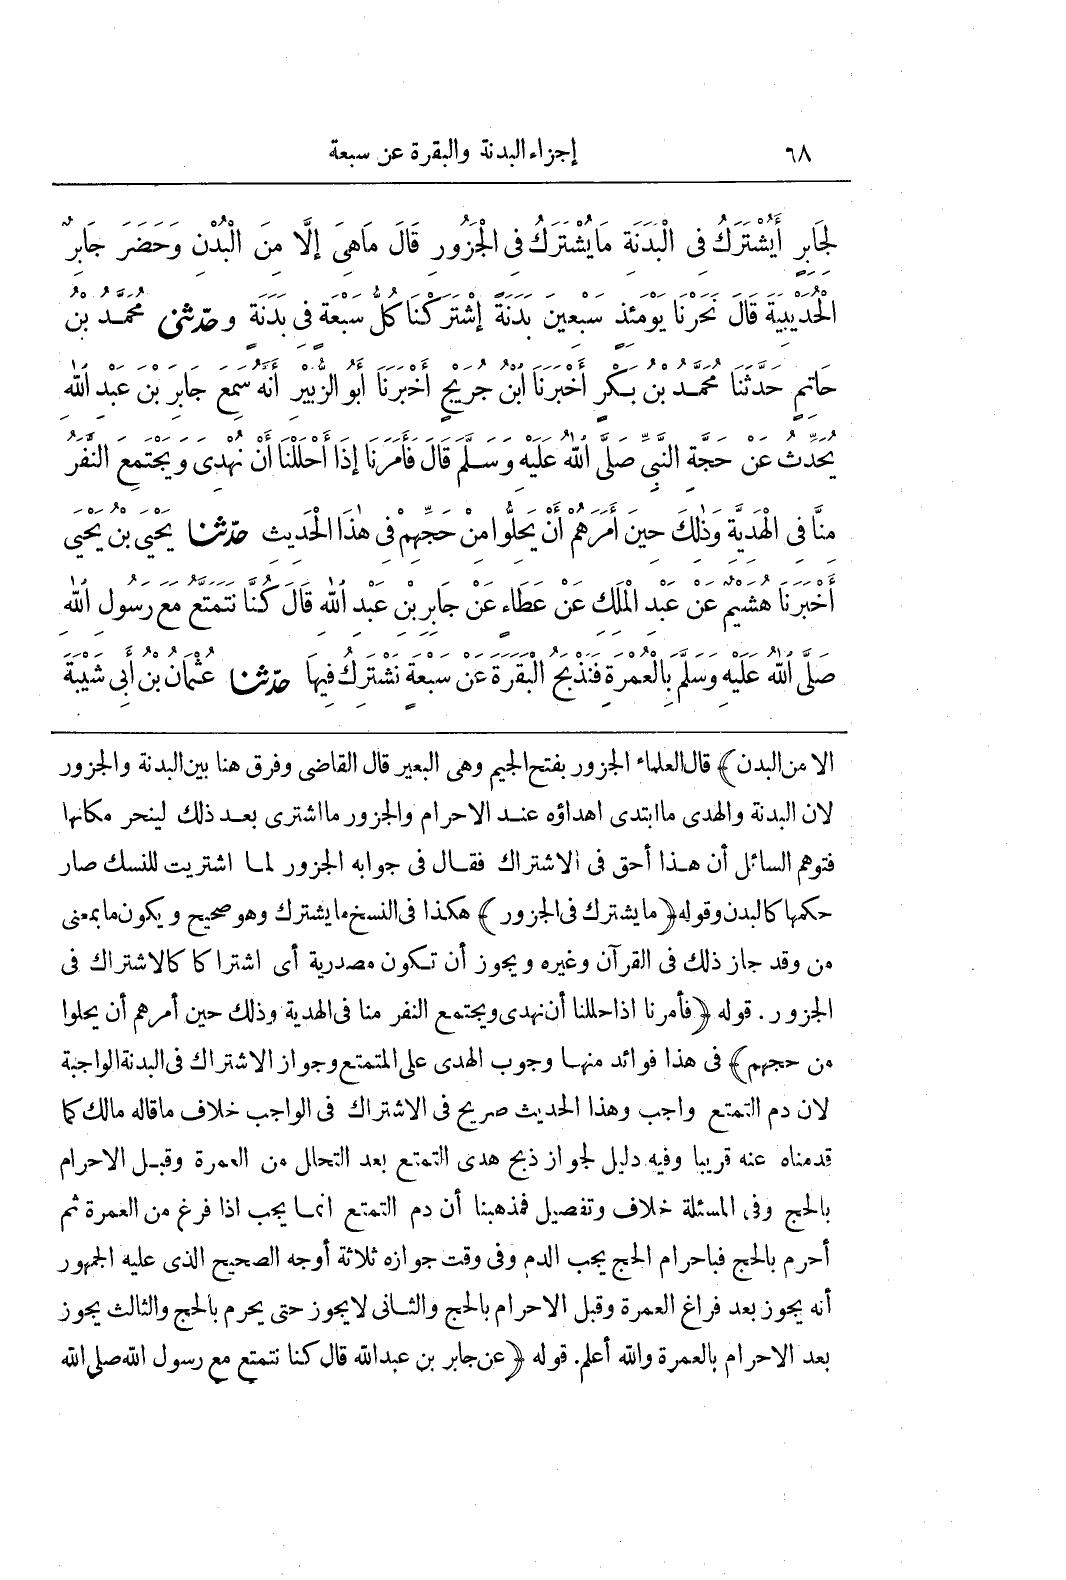 ٦٨ إجزاء البدنة والبقرة عن سبعة
لِجَابِرٍ أَيُشْتَرَكُ فِي الْبَدَنَةِ مَا يُشْتَرَكُ فِي الْجَزُورِ قَالَ مَا هِيَ إِلَّا مِنَ الْبُدْنِ وَحَضَرَ جَابِرٌ
الْحُدَيْبِيَةَ قَالَ نَحَرْنَا يَوْمَئِذٍ سَبْعِينَ بَدَنَةً إِشْتَرَكْنَا كُلُّ سَبْعَةٍ فِي بَدَنَةٍ و حَدَّثَنِي مُحَمَّدُ بْنُ
حَاتِمٍ حَدَّثَنَا مُحَمَّدُ بْنُ بَكْرٍ أَخْبَرَنَا ابْنُ جُرَيْجٍ أَخْبَرَنَا أَبُو الزُّبَيْرِ أَنَّهُ سَمِعَ جَابِرَ بْنَ عَبْدِ اللهِ
يُحَدِّثُ عَنْ حَجَّةِ النَّبِيِّ صَلَّى اللهُ عَلَيْهِ وَسَلَّمَ قَالَ فَأَمَرَنَا إِذَا أَحْلَلْنَا أَنْ نُهْدِيَ وَيَجْتَمِعَ النَّفَرُ
مِنَّا فِي الْهَدِيَّةِ وَذٰلِكَ حِينَ أَمَرَهُمْ أَنْ يَحِلُّوا مِنْ حَجِّهِمْ فِي هٰذَا الْحَدِيثِ حَدَّثَنَا يَحْيَى بْنُ يَحْيَى
أَخْبَرَنَا هُشَيْمٌ عَنْ عَبْدِ الْمَلِكِ عَنْ عَطَاءٍ عَنْ جَابِرِ بْنِ عَبْدِ اللهِ قَالَ كُنَّا نَتَمَتَّعُ مَعَ رَسُولِ اللهِ
صَلَّى اللهُ عَلَيْهِ وَسَلَّمَ بِالْعُمْرَةِ فَنَذْبَحُ الْبَقَرَةَ عَنْ سَبْعَةٍ نَشْتَرِكُ فِيهَا حَدَّثَنَا عُثْمَانُ بْنُ أَبِي شَيْبَةَ
الا من البدن﴾ قال العلماء الجزور بفتح الجيم وهى البعير قال القاضى وفرق هنا بين البدنة والجزور
لان البدنة والهدى ما ابتدى اهداؤه عند الاحرام والجزور ما اشترى بعد ذلك لينحر مكانها
فتوهم السائل أن هذا أحق فى الاشتراك فقال فى جوابه الجزور لما اشتريت للنسك صار
حكمها كالبدن وقوله ﴿ما يشترك فى الجزور﴾ هكذا فى النسخ ما يشترك وهو صحيح ويكون ما بمعنى
من وقد جاز ذلك فى القرآن وغيره ويجوز أن تكون مصدرية أى اشتراكا كالاشتراك فى
الجزور. قوله ﴿فأمرنا اذا حللنا أن نهدى ويجتمع النفر منا فى الهدية وذلك حين أمرهم أن يحلوا
من حجهم﴾ فى هذا فوائد منها وجوب الهدى على المتمتع وجواز الاشتراك فى البدنة الواجبة
لان دم التمتع واجب وهذا الحديث صريح فى الاشتراك فى الواجب خلاف ما قاله مالك كما
قدمناه عنه قريبا وفيه دليل لجواز ذبح هدى التمتع بعد التحلل من العمرة وقبل الاحرام
بالحج وفى المسئلة خلاف وتفصيل فمذهبنا أن دم التمتع انما يجب اذا فرغ من العمرة ثم
أحرم بالحج فباحرام الحج يجب الدم وفى وقت جوازه ثلاثة أوجه الصحيح الذى عليه الجمهور
أنه يجوز بعد فراغ العمرة وقبل الاحرام بالحج والثانى لا يجوز حتى يحرم بالحج والثالث يجوز
بعد الاحرام بالعمرة والله أعلم. قوله ﴿عن جابر بن عبدالله قال كنا نتمتع مع رسول الله صلى الله